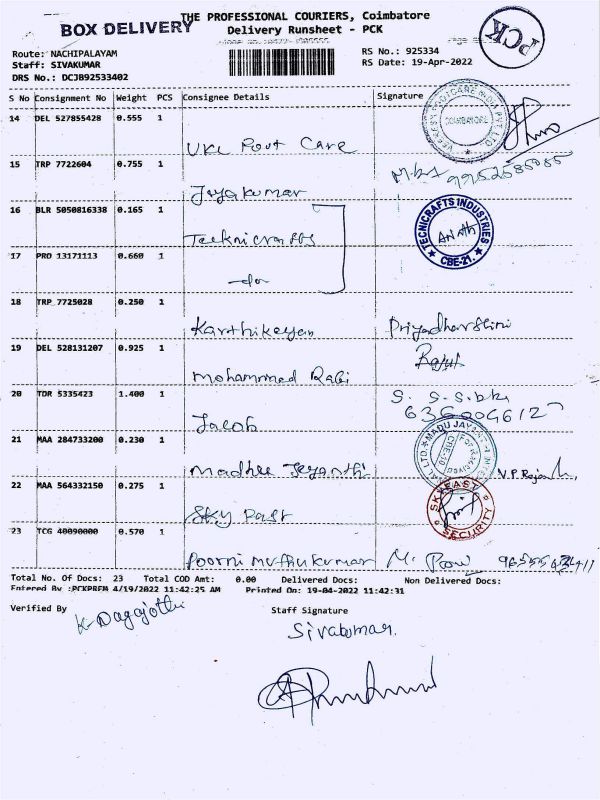 BOX DELIVERY
THE PROFESSIONAL COURIERS, Coimbatore
Delivery Runsheet - PCK
PCK
Route: NACHIPALAYAM
Staff: SIVAKUMAR
DRS No.: DCJB92533402
RS No.: 925334
RS Date: 19-Apr-2022
S No Consignment No Weight PCS Consignee Details Signature
14 DEL 527855428 0.555 1
Care
COIMBATORE
15 TRP 7722604 0.755 1
Jayakumar
16 BLR 5050816338 0.165 1
TECNICRAFTS INDUSTRIES
CBE-21.
17 PRO 13171113 0.660 1
-do-
18 TRP 7725028 0.250 1
Karthikeyan Priyadharshini
19 DEL 528131207 0.925 1
Mohammed Rabi
20 TDR 5335423 1.400 1
Jacob
21 MAA 284733200 0.230 1
Madhu Jeyanthi
22 MAA 564332150 0.275 1
Sky Past
SKYFAST
SECURITY
23 TCG 40090000 0.570 1
Poorni Muthukumar
Total No. Of Docs: 23 Total COD Amt: 0.00 Delivered Docs: Non Delivered Docs:
Entered By :PCKPREM 4/19/2022 11:42:25 AM Printed On: 19-04-2022 11:42:31
Verified By Staff Signature
Sivakumar.